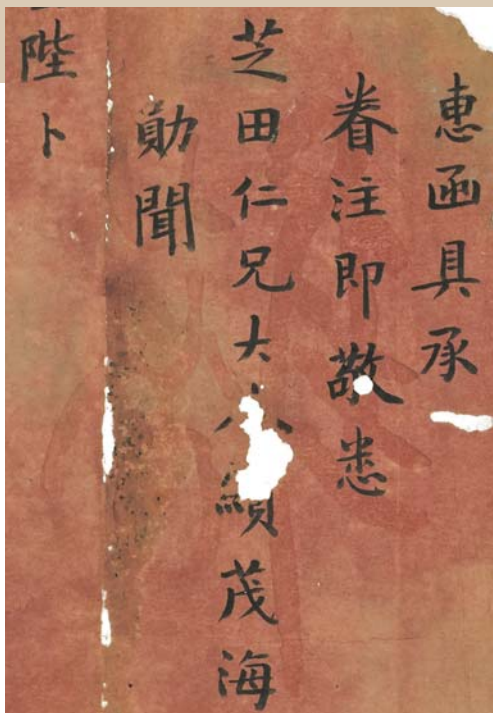 惠函具承
眷注即敬悉
芝田仁兄大人績茂海
勛聞
陛卜